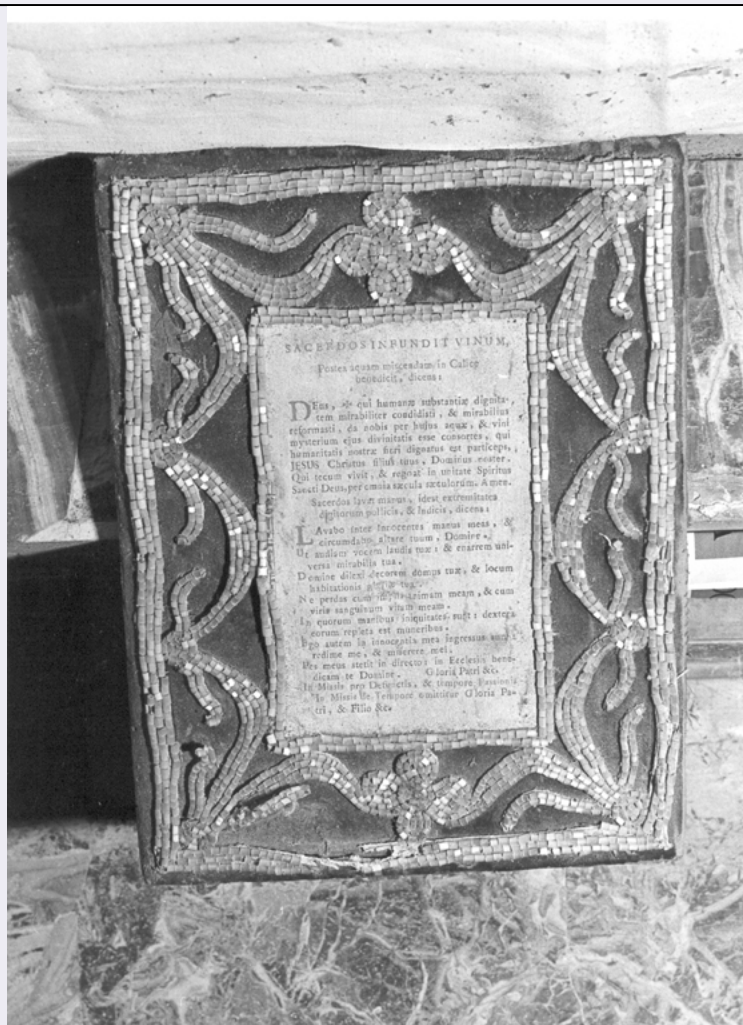 SACERDOS INFUNDIT VINUM,
Postea aquam miscendam in Calice
benedicit, dicens:
DEus, ✠ qui humanæ substantiæ dignita-
tem mirabiliter condidisti, & mirabilius
reformasti, da nobis per hujus aquæ, & vini
mysterium ejus divinitatis esse consortes, qui
humanitatis nostræ fieri dignatus est particeps,
JESUS Christus filius tuus, Dominus noster.
Qui tecum vivit, & regnat in unitate Spiritus
Sancti Deus, per omnia sæcula sæculorum. Amen.
Sacerdos lavat manus, idest extremitates
digitorum pollicis, & Indicis, dicens:
LAvabo inter innocentes manus meas, &
circumdabo altare tuum, Domine.
Ut audiam vocem laudis tuæ: & enarrem uni-
versa mirabilia tua.
Domine dilexi decorem domus tuæ, & locum
habitationis gloriæ tuæ.
Ne perdas cum impiis animam meam, & cum
viris sanguinum vitam meam.
In quorum manibus iniquitates sunt: dextera
eorum repleta est muneribus.
Ego autem in innocentia mea ingressus sum:
redime me, & miserere mei.
Pes meus stetit in directo: in Ecclesiis bene-
dicam te Domine. Gloria Patri &c.
In Missis pro Defunctis, & tempore Passionis
in Missis de Tempore omittitur Gloria Pa-
tri, & Filio &c.